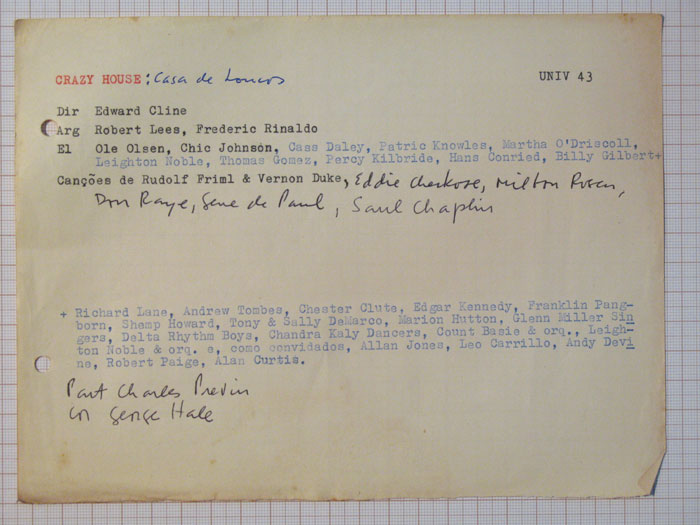 CRAZY HOUSE: Casa de Loucos UNIV 43
Dir Edward Cline
Arg Robert Lees, Frederic Rinaldo
El Ole Olsen, Chic Johnson, Cass Daley, Patric Knowles, Martha O'Driscoll,
Leighton Noble, Thomas Gomez, Percy Kilbride, Hans Conried, Billy Gilbert+
Canções de Rudolf Friml & Vernon Duke, Eddie Cherkose, Milton Rosen,
Don Raye, Gene de Paul, Saul Chaplin
+ Richard Lane, Andrew Tombes, Chester Clute, Edgar Kennedy, Franklin Pang-
born, Shemp Howard, Tony & Sally DeMarco, Marion Hutton, Glenn Miller Sin
gers, Delta Rhythm Boys, Chandra Kaly Dancers, Count Basie & orq., Leigh-
ton Noble & orq. e, como convidados, Allan Jones, Leo Carrillo, Andy Devi
ne, Robert Paige, Alan Curtis.
Part Charles Previn
Cor George Hale